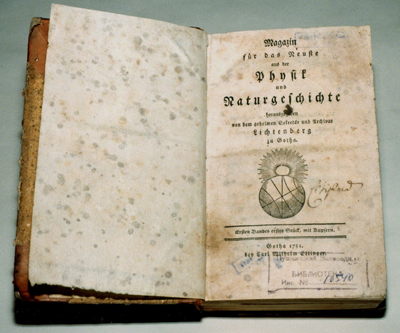 Magazin
für das Neuste
aus der
Physik
und
Naturgeschichte
herausgegeben
von dem geheimen Sekretär und Archivar
Lichtenberg
zu Gotha.
Ersten Bandes erstes Stück, mit Kupfern.
Gotha 1781.
bey Carl Wilhelm Ettinger.
БИБЛИОТЕКА
Инв. №